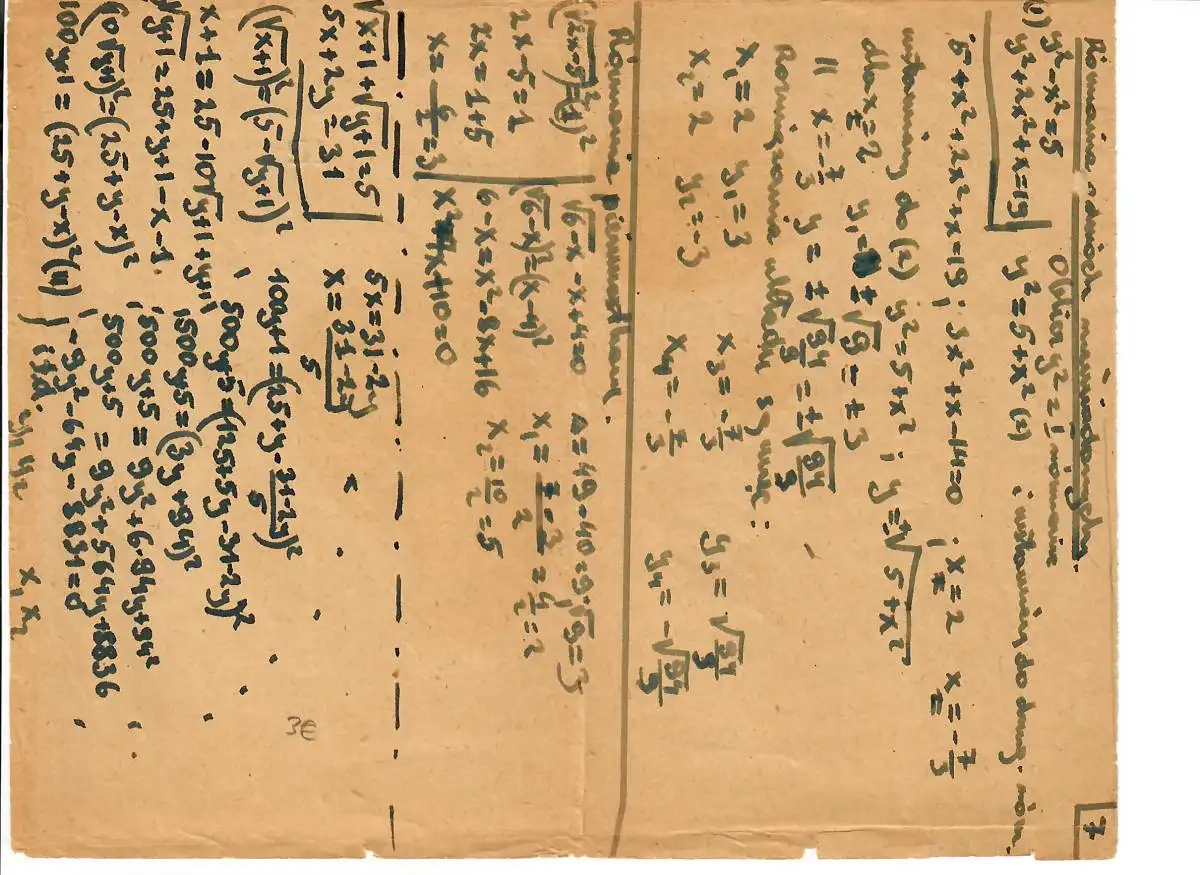 7
Równania o dwóch niewiadomych.
(1) y² - x² = 5
y² + 2x² + x = 19
Obliczam y² z I równania
y² = 5 + x² (2) i wstawiamy do drug. równ.
5 + x² + 2x² + x = 19; 3x² + x - 14 = 0; x = 2 x = -7/3
wstawiamy do (2) y² = 5 + x²; y = ±√5 + x²
dla x = 2 y₁ = ±√9 = ±3
" x = -7/3 y = ±√94/9 = ±√94/3
Rozwiązania układu są więc:
x₁ = 2 y₁ = 3 x₃ = -7/3 y₃ = √94/3
x₂ = 2 y₂ = -3 x₄ = -7/3 y₄ = -√94/3
Równania pierwiastkowe.
(√2x-5)² = (1)² √6-x - x + 4 = 0 Δ = 49 - 40 = 9; √9 = 3
2x - 5 = 1 (√6-x)² = (x-4)² x₁ = 7-3/2 = 4/2 = 2
2x = 1 + 5 6 - x = x² - 8x + 16 x₂ = 10/2 = 5
x = 6/2 = 3 x² - 7x + 10 = 0
√x+1 + √y+1 = 5 5x = 31 - 2y
5x + 2y = 31 x = 31-2y/5
(√x+1)² = (5 - √y+1)² 100y+1 = (25 + y - 31-2y/5)²
x + 1 = 25 - 10√y+1 + y + 1; 500y5 = (125 + 5y - 31 - 2y)²
√y+1 = 25 + y + 1 - x - 1. ; 500y5 = (3y + 94)²
(10√y+1)² = (25 + y - x)² ; 500y+5 = 9y² + 6·94y + 94²
500y+5 = 9y² + 564y + 8836
100y1 = (25 + y - x)² (4) ; -9y² - 64y - 8831 = 0
itd.
y₁ y₂ x₁ x₂
3E